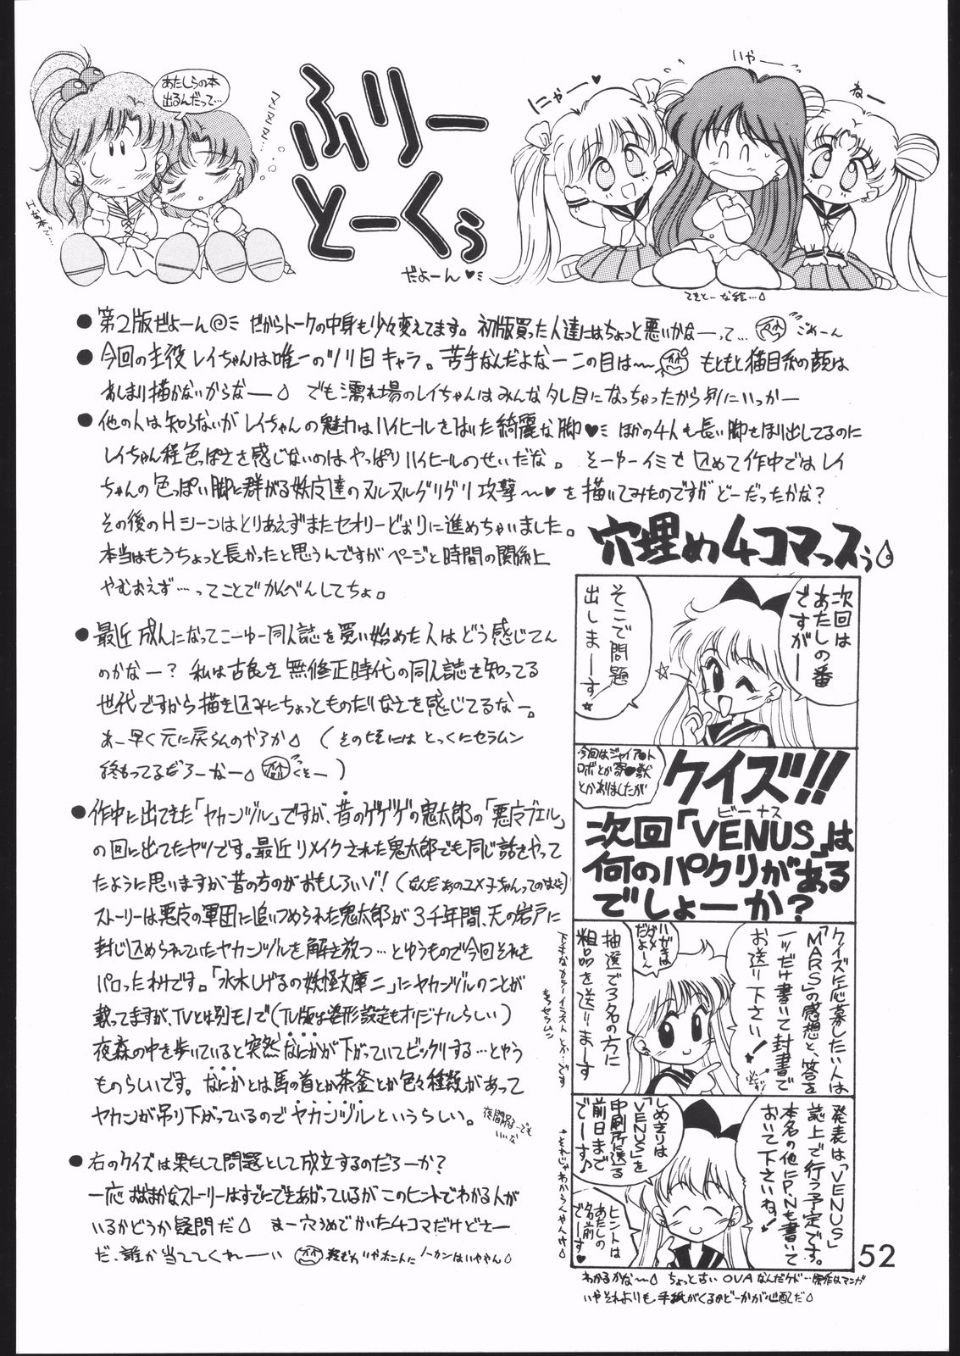 あたしらの本
出るんだって…
ふりー
とーくぅ
だよーん♥ミ
にゃー♥
いやー
ねー
てきとーな絵…
●第2版だよーん◎ミ だからトークの中身も少々変えてます。初版買った人達にはちょっと悪いかなーって… ごめーん
●今回の主役レイちゃんは唯一のツリ目キャラ。苦手なんだよなーこの目は〜 もともと猫目系の顔は
あまり描かないからなー でも濡れ場のレイちゃんはみんなタレ目になっちゃったから別にいっかー
●他の人は知らないがレイちゃんの魅力はハイヒールをはいた綺麗な脚♥ミ ほかの4人も長い脚をほり出してるのに
レイちゃん程色っぽさを感じないのはやっぱりハイヒールのせいだな。そーゆーイミを込めて作中ではレイ
ちゃんの色っぽい脚に群がる妖魔達のヌルヌルグリグリ攻撃〜♥を描いてみたのですがどーだったかな?
その後のHシーンはとりあえずまたセオリーどおりに進めちゃいました。
本当はもうちょっと長かったと思うんですがページと時間の関係上
やむおえず…ってことでかんべんしてちょ。
●最近成人になってこーゆー同人誌を買い始めた人はどう感じてん
のかなー? 私は古良き無修正時代の同人誌を知ってる
世代ですから描き込みにちょっとものたりなさを感じてるなー。
あー早く元に戻らんのやろか (その頃にはとっくにセラムン
終もってるだろーなー くそー)
●作中に出てきた「ヤカンヅル」ですが、昔のゲゲゲの鬼太郎の「悪魔ブエル」
の回に出てたヤツです。最近リメイクされた鬼太郎でも同じ話をやって
たように思いますが昔の方のがおもしろいゾ!
ストーリーは悪魔の軍団に追いつめられた鬼太郎が3千年間、天の岩戸に
封じ込められていたヤカンヅルを解き放つ…とゆうもので今回それを
パロったわけです。「水木しげるの妖怪文庫二」にヤカンヅルのことが
載ってますが、TVとは別モノで(TV版は姿形設定もオリジナルらしい)
夜森の中を歩いていると突然なにかが下がっていてビックリする…とゆう
ものらしいです。なにかとは馬の首とか茶釜とか色々種類があって
ヤカンが吊り下がっているのでヤカンヅルというらしい。
●右のクイズは果たして問題として成立するのだろーか?
一応おおまかなストーリーはすでにできあがっているがこのヒントでわかる人が
いるかどうか疑問だ まー穴うめでかいた4コマだけどさー
だ、誰か当ててくれーーい
穴埋め4コマっスぅ
次回は
あたしの番
ですがー
そこで問題
出しまーす★
今回はジャイアント
ロボとか寄●獣
とかありましたが
クイズ!!
次回「VENUS」は
ビーナス
何のパクリがある
でしょーか?
クイズに応募したい人は
「MARS」の感想と、答を
一ツだけ書いて封書で
お送り下さい!
抽選で3名の方に
粗品を送ります
ハガキは
ダメ
だよーん
発表は「VENUS」
誌上で行う予定です。
本名の他にP.Nも書いて
おいて下さいね!
しめきりは
「VENUS」を
印刷所に送る
前日まで
でーす♪
ヒントは
あたしの
名前
でーす♥
わかるかなー ちょっと古いOVAなんだケド…
いやそれよりも手紙がくるかどーかが心配だ
52